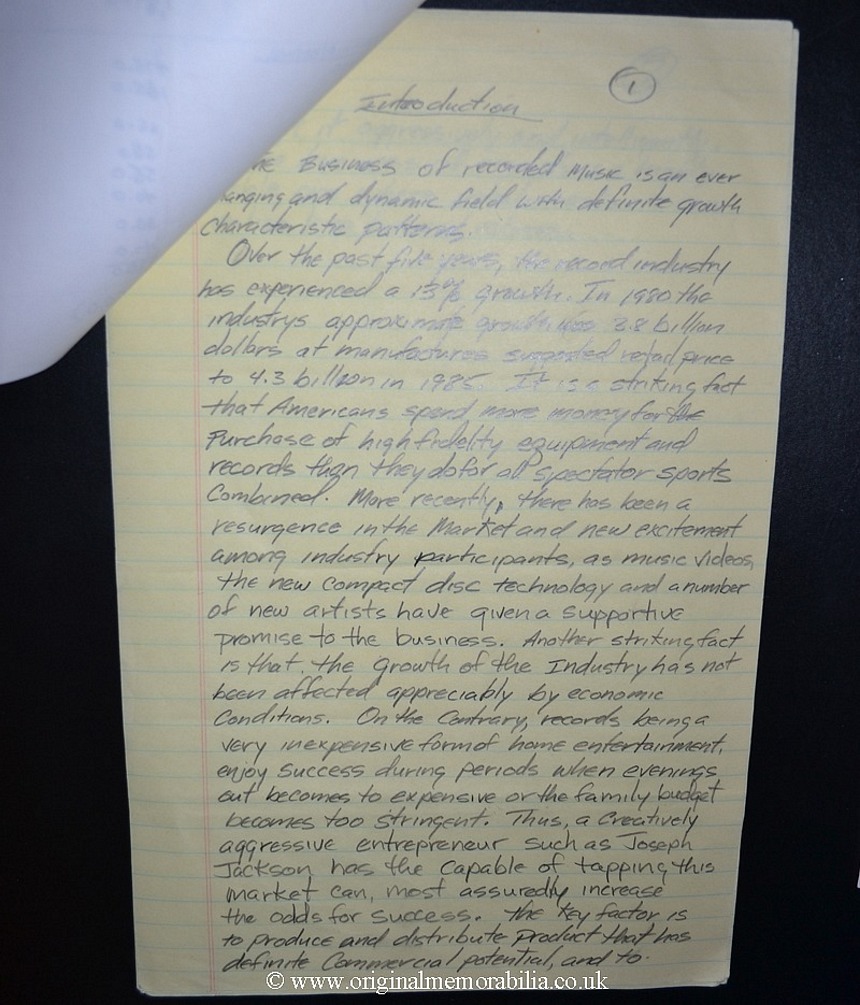 1
Introduction
The Business of recorded Music is an ever
changing and dynamic field with definite growth
characteristic patterns.
Over the past five years, the record industry
has experienced a 13% growth. In 1980 the
industrys approximate growth was 2.8 billion
dollars at manufactures suggested retail price
to 4.3 billion in 1985. It is a striking fact
that Americans spend more money for the
Purchase of high fidelity equipment and
records than they do for all spectator sports
Combined. More recently, there has been a
resurgence in the Market and new excitement
among industry participants, as music videos,
the new compact disc technology and a number
of new artists have given a supportive
promise to the business. Another striking fact
is that the growth of the Industry has not
been affected appreciably by economic
Conditions. On the Contrary, records being a
very inexpensive form of home entertainment,
enjoy success during periods when evenings
out becomes to expensive or the family budget
becomes too stringent. Thus, a Creatively
aggressive entrepreneur such as Joseph
Jackson has the Capable of tapping this
market can, most assuredly increase
the odds for success. The Key factor is
to produce and distribute Product that has
definite Commercial potential, and to
© www.originalmemorabilia.co.uk